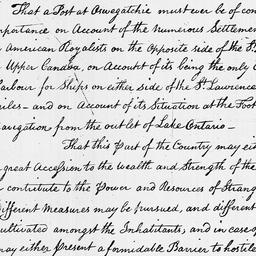 That a Post at Oswegatchie must ever be of con
mportance on Account of the numerous Settlemen
American Royalists on the Opposite side of the St
Upper Canada, on Account of its being the only
Harbour for Ships on either side of the St. Lawrence
iles - and on Account of its Situation at the Foot
navigation from the outlet of Lake Ontario -
That this Part of the Country may eith
great Accession to the Wealth and Strength of the
contribute to the Power and Resources of Strang
different Measures may be pursued, and different
ultivated amongst the Inhabitants, and in case of
may either Present a formidable Barrier to hostile